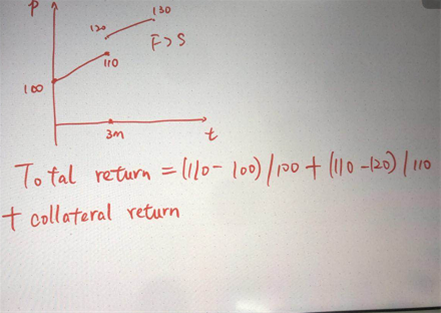 P
130
120
F>S
110
100
3m
t
Total return = (110-100)/100 + (110-120)/110
+ collateral return